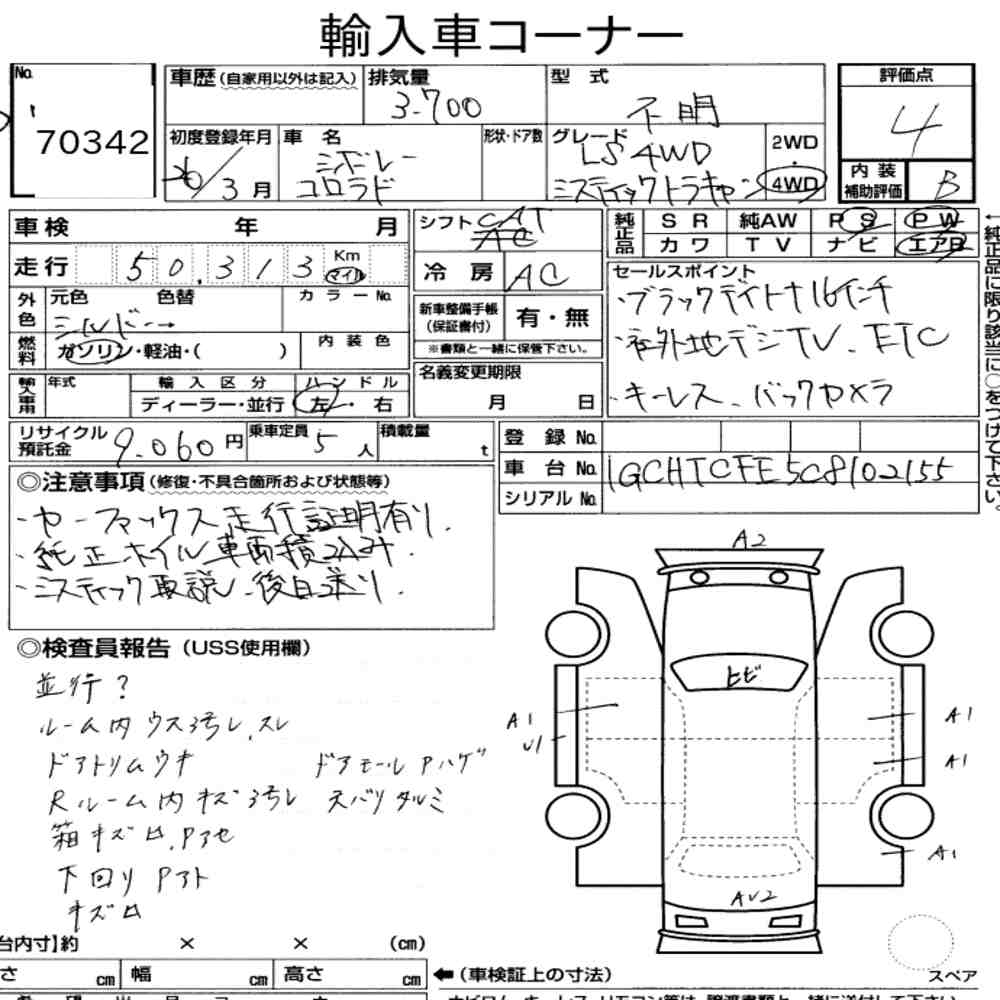 輸入車コーナー
No. 70342
車歴(自家用以外は記入) 排気量 3.700 型式 不明 評価点 4
初度登録年月 20/3月 車名 シボレー コロラド 形状・ドア数 グレード LS 4WD ミスティックトラキャン 2WD・4WD 内装補助評価 B
車検 年 月 シフト CAT AC 純正品 SR 純AW PS PW
カワ TV ナビ エアB
走行 50,313 Km マイル 冷房 AC
外色 元色 色替 カラーNo. シルバー→
セールスポイント
・ブラックデイトナ16インチ
・社外地デジTV、ETC
・キーレス、バックカメラ
新車整備手帳(保証書付) 有・無
※書類と一緒に保管下さい。
燃料 ガソリン・軽油・( ) 内装色
名義変更期限 月 日
輸入車用 年式 輸入区分 ディーラー・並行 ハンドル 左・右
リサイクル預託金 9.060円 乗車定員 5人 積載量 t
登録No.
車台No. 1GCHTCFE5C8102155
シリアルNo.
←純正品に限り該当に○をつけて下さい。
◎注意事項(修復・不具合箇所および状態等)
・カーファックス走行証明有り.
・純正ホイル車両積込み.
・ミスティック取説、後日送り.
◎検査員報告(USS使用欄)
並行?
ルーム内ウス汚レ、スレ
ドアトリムウキ ドアモールPハゲ
Rルーム内キズ汚レ 天バリタルミ
箱キズ凹、Pアセ
下回りPアト
キズ凹
A2
ヒビ
A1
U1
A1
A1
A1
AU2
スペア
台内寸】約 × × (cm)
さ cm 幅 cm 高さ cm
←(車検証上の寸法)